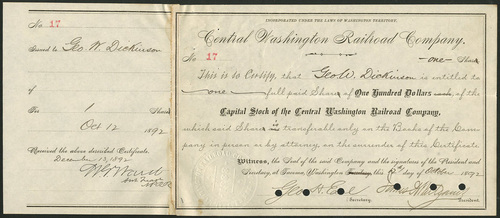 No. 17
Issued to Geo. W. Dickinson
of
For 1 Share
Oct 12 1892
Received the above described Certificate.
December 13, 1892
INCORPORATED UNDER THE LAWS OF WASHINGTON TERRITORY.
Central Washington Railroad Company.
No. 17 -one- Share
This is to Certify, that Geo W. Dickinson is entitled to
one full paid Share of One Hundred Dollars each, of the
Capital Stock of the Central Washington Railroad Company,
which said Share is transferable only on the Books of the Company
in person or by attorney, on the surrender of this Certificate.
Witness, the Seal of said Company and the signatures of the President and
Secretary, at Tacoma, Washington this October 1892
Geo H. Earl
Secretary. President.